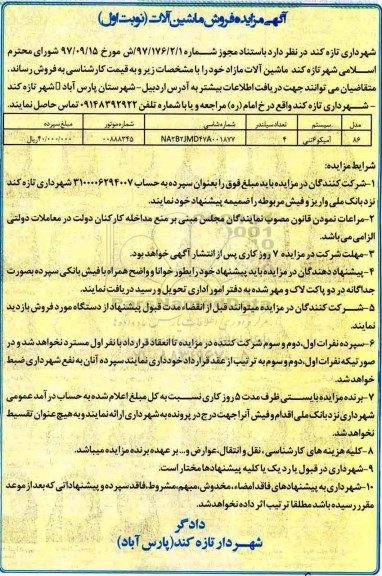 آگهی مزایده فروش ماشین آلات (نوبت اول)
شهرداری تازه کند در نظر دارد باستناد مجوز شماره ۹۷/۱۷۶/۲/۱/ش مورخ ۹۷/۰۹/۱۵ شورای محترم
اسلامی شهر تازه کند ماشین آلات مازاد خود را با مشخصات زیر و به قیمت کارشناسی به فروش رساند.
متقاضیان می توانند جهت دریافت اطلاعات بیشتر به آدرس اردبیل -شهرستان پارس آباد شهر تازه کند
- شهرداری تازه کند واقع در خ امام (ره) مراجعه و یا با شماره تلفن ۰۹۱۴۸۳۹۲۹۲۲ تماس حاصل نمایند.
مدل سیستم تعداد سیلندر شماره شاسی شماره موتور مبلغ سپرده
۸۶ آمیکو ۶تنی ۴ NA۲B۲JMD۴۷A۰۰۱۸۷۷ ۰۰۸۸۸۳۴۵ ۴۰/۰۰۰/۰۰۰ریال
شرایط مزایده:
۱-شرکت کنندگان در مزایده باید مبلغ فوق را بعنوان سپرده به حساب ۳۱۰۰۰۰۶۲۹۴۰۰۷ شهرداری تازه کند
نزد بانک ملی واریز و فیش مربوطه را ضمیمه پیشنهاد خود نمایند.
۲-مراعات نمودن قانون مصوب نمایندگان مجلس مبنی بر منع مداخله کارکنان دولت در معاملات دولتی
الزامی می باشد.
۳-مهلت شرکت در مزایده ۷ روز کاری پس از انتشار آگهی خواهد بود.
۴-پیشنهاد دهندگان در مزایده باید پیشنهاد خود را بطور خوانا و واضح همراه با فیش بانکی سپرده بصورت
جداگانه در دو پاکت لاک و مهر شده به دفتر امور اداری تحویل و رسید دریافت نمایند.
۵-شرکت کنندگان در مزایده میتوانند قبل از انقضاء مدت قبول پیشنهاد از دستگاه مورد فروش بازدید
نمایند.
۶-سپرده نفرات اول، دوم و سوم شرکت کننده در مزایده تا انعقاد قرارداد با نفر اول مسترد نخواهد شد و در
صورتیکه نفرات اول، دوم و سوم به ترتیب از عقد قرارداد خودداری نمایند سپرده آنان به نفع شهرداری ضبط
خواهد شد.
۷-برنده مزایده بایستی ظرف مدت ۵ روز کاری نسبت به کل مبلغ اعلام شده به حساب درآمد عمومی
شهرداری نزد بانک ملی اقدام و فیش آنرا جهت درج در پرونده به شهرداری ارائه نمایند و به هیچ عنوان تقسیط
نخواهد شد.
۸-کلیه هزینه های کارشناسی، نقل و انتقال، عوارض و... بر عهده برنده مزایده میباشد.
۹-شهرداری در قبول یا رد یک یا کلیه پیشنهادها مختار است.
۱۰-شهرداری به پیشنهادهای فاقد امضاء، مخدوش، مبهم، مشروط، فاقد سپرده و پیشنهاداتی که بعد از موعد
مقرر رسیده باشد مطلقا ترتیب اثر داده نخواهد شد.
دادگر
شهردار تازه کند(پارس آباد)